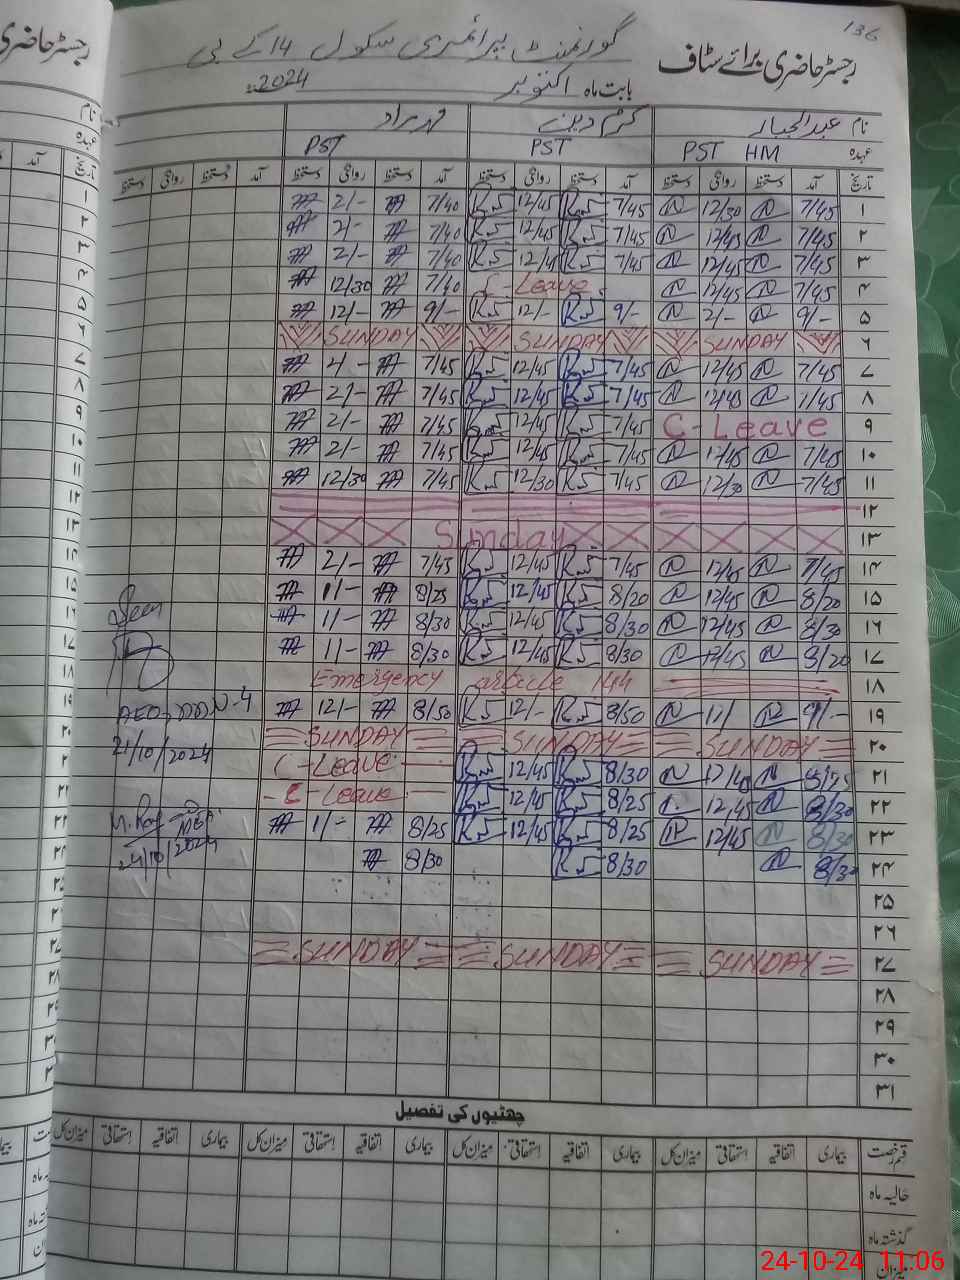 136
رجسٹر حاضری برائے سٹاف
گورنمنٹ پرائمری سکول 14 کے بی
بابت ماہ اکتوبر 2024ء
نام عبدالجبار کرم دین
عہدہ PST HM PST PST
تاریخ آمد دستخط روانگی دستخط آمد دستخط روانگی دستخط آمد دستخط روانگی دستخط آمد دستخط روانگی دستخط
۱ 7/45 12/30 7/45 12/45 7/40 2/-
۲ 7/45 12/45 7/45 12/45 7/40 2/-
۳ 7/45 12/45 7/45 12/45 7/40 2/-
۴ 7/45 12/45 C-Leave 7/40 12/30
۵ 9/- 2/- 9/- 12/- 9/- 12/-
۶ SUNDAY SUNDAY SUNDAY
۷ 7/45 12/45 7/45 12/45 7/45 2/-
۸ 7/45 12/45 7/45 12/45 7/45 2/-
۹ C-Leave 7/45 12/45 7/45 2/-
۱۰ 7/45 12/45 7/45 12/45 7/45 2/-
۱۱ 7/45 12/30 7/45 12/30 7/45 12/30
۱۲
۱۳ Sunday
۱۴ 7/45 12/45 7/45 12/45 7/45 2/-
۱۵ 8/20 12/45 8/20 12/45 8/25 1/-
۱۶ 8/30 12/45 8/30 12/45 8/30 1/-
۱۷ 8/20 12/45 8/30 12/45 8/30 1/-
۱۸ Emergency article 144
۱۹ 9/- 12/ 8/50 12/- 8/50 12/-
۲۰ SUNDAY SUNDAY SUNDAY
21/10/2024
۲۱ 8/25 12/40 8/30 12/45 C-Leave
۲۲ 8/30 12,45 8/25 12/45 C-Leave
۲۳ 8/30 12/45 8/25 12/45 8/25 1/-
۲۴ 8/30 8/30 8/30
24/10/2024
۲۵
۲۶
۲۷ SUNDAY SUNDAY SUNDAY
۲۸
۲۹
۳۰
۳۱
چھٹیوں کی تفصیل
قسم رخصت بیماری اتفاقیہ استحقاقی میزان کل بیماری اتفاقیہ استحقاقی میزان کل بیماری اتفاقیہ استحقاقی میزان کل بیماری اتفاقیہ استحقاقی میزان کل
حالیہ ماہ
گذشتہ ماہ
میزان
24-10-24 11:06